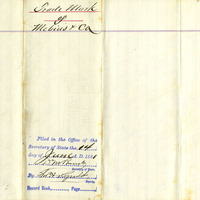 Trade Mark
of
Mebius & Co
Filed in the Office of the
Secretary of State the 14
day of June A.D. 1881
Secretary of State
By
Deputy
Record Book Page